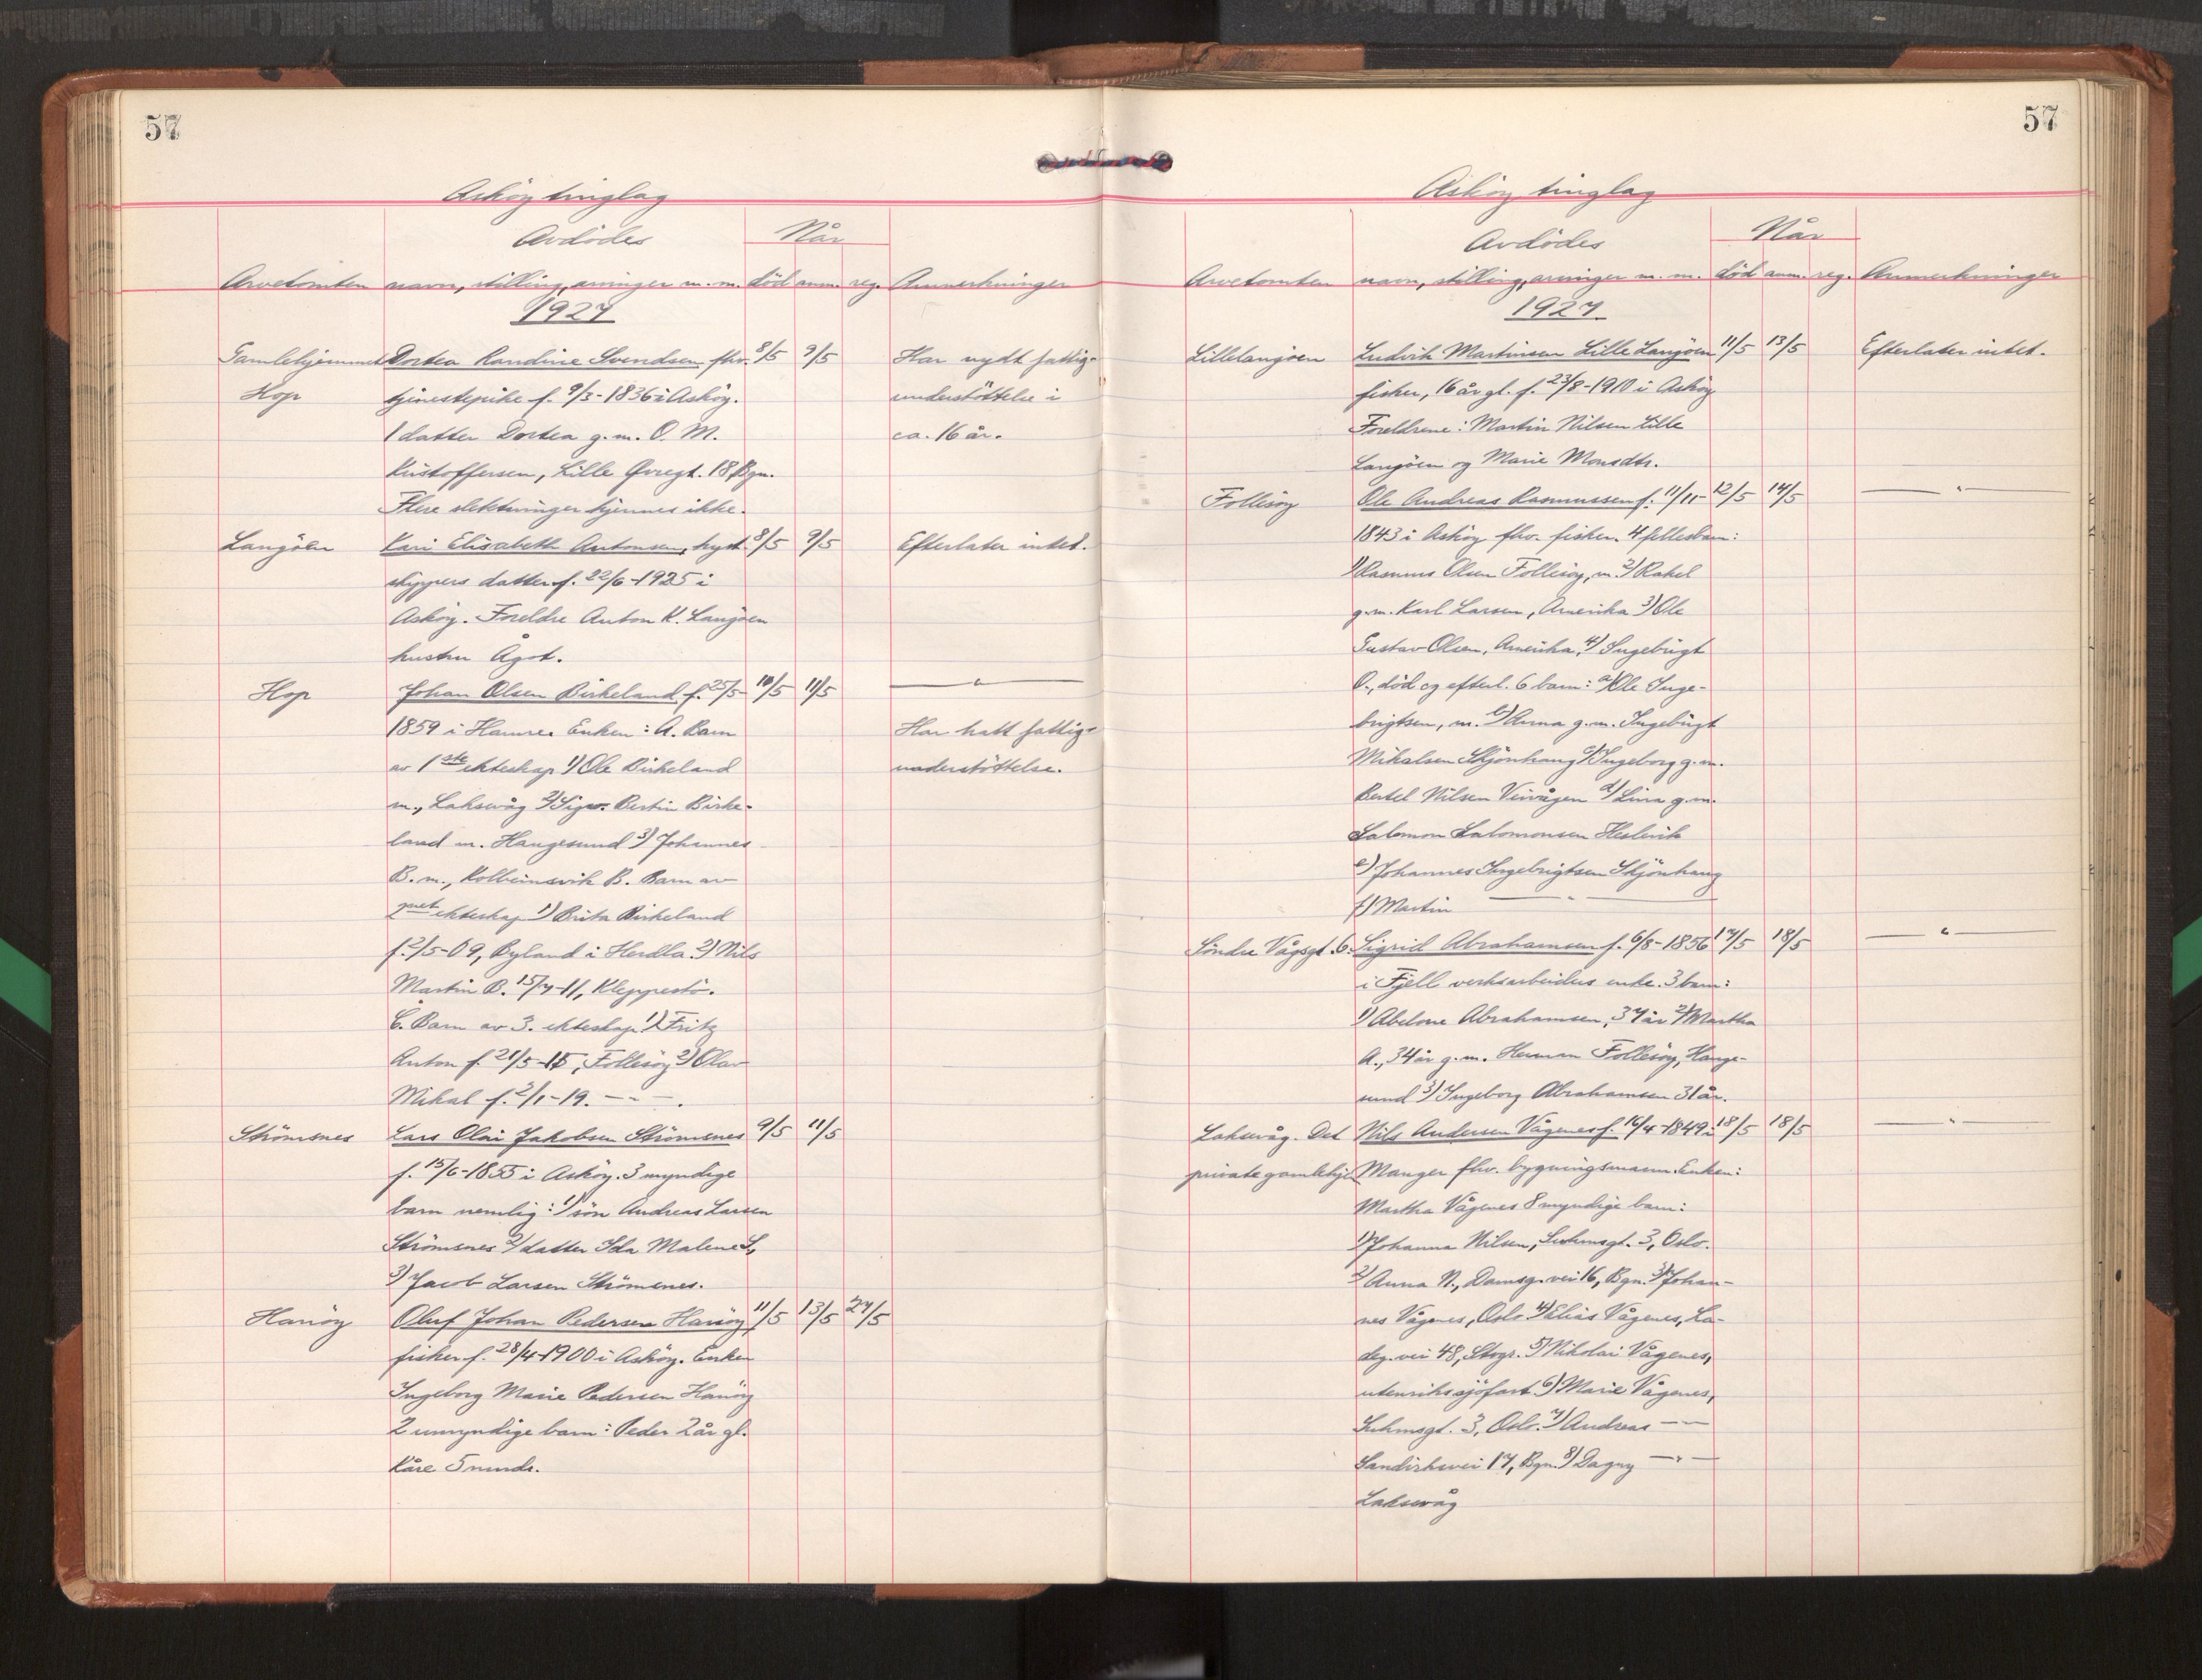 57
Askøy tinglag
Avdødes
Når
Arvetomten navn, stilling, arvinger m. m. død anm. reg. Anmerkninger
1927
Gamlehjemmet Dortea Randine Svendsen fhv. 8/5 9/5 Har nydt fattig-
Hop tjenestepike f. 9/3-1836 i Askøy. understøttelse i
1 datter Dortea g. m. O. M. ca. 16 år.
Kristoffersen, Lille Øvregt. 18 Bgn.
Flere slektninger kjennes ikke.
Langøen Kari Elisabeth Antonsen, kyst- 8/5 9/5 Efterlater intet.
skippers datter f. 22/6-1925 i
Askøy. Foreldre Anton K. Langøen
hustru Ågot.
Hop Johan Olsen Birkeland f. 25/5- 10/5 11/5 — " —
1859 i Hamre. Enken: A. Barn Har hatt fattig-
av 1ste ekteskap 1) Ole Birkeland understøttelse.
m., Laksevåg 2) Sigv. Bertin Birke-
land m. Haugesund 3) Johannes
B. m., Kolbeinsvik B. Barn av
2net ekteskap 1) Brita Birkeland
f. 2/5-09, Byland i Herdla. 2) Nils
Martin B. 15/7-11, Kleppestø.
C. Barn av 3. ekteskap 1) Fritz
Anton f. 21/5-15, Follesøy 2) Olav
Mikal f. 2/1-19. — " —.
Strømsnes Lars Olai Jakobsen Strømsnes 9/5 11/5
f. 15/6-1855 i Askøy. 3 myndige
barn nemlig: 1) søn Andreas Larsen
Strømsnes 2) datter Ida Malene S,
3) Jacob Larsen Strømsnes.
Hanøy Oluf Johan Pedersen Hanøy, 11/5 13/5 27/5
fisker f. 28/4-1900 i Askøy. Enken
Ingeborg Marie Pedersen Hanøy
2 umyndige barn: Peder 2 år gl.
Kåre 5 mndr.
57
Askøy tinglag
Avdødes
Når
Arvetomten navn, stilling, arvinger m. m. død anm. reg. Anmerkninger
1927.
Lillelangøen Ludvik Martinsen Lille Langøen 11/5 13/5 Efterlater intet.
fisker, 16 år gl. f. 23/8-1910 i Askøy
Foreldrene: Martin Nilsen Lille
Langøen og Marie Monsdtr.
Follesøy Ole Andreas Rasmussen f. 11/11- 12/5 14/5 — " —
1843 i Askøy fhv. fisker. 4 fellesbarn:
1) Rasmus Olsen Follesøy, m. 2) Rakel
g. m. Karl Larsen, Amerika 3) Ole
Gustav Olsen, Amerika, 4) Ingebrigt
O., død og efterl. 6 barn: a) Ole Inge-
brigtsen, m. b) Anna g. m. Ingebrigt
Mikalsen Skjønhaug c) Ingeborg g. m.
Bertel Nilsen Veivågen d) Lina g. m.
Salomon Salomonsen Heslevik
e) Johannes Ingebrigtsen Skjønhaug
f) Martin — " —
Søndre Vågsgt. 6. Sigrid Abrahamsen f. 6/8-1856 17/5 18/5 — " —
i Fjell verksarbeiders enke. 3 barn:
1) Abelone Abrahamsen, 37 år 2) Martha
A., 34 år g. m. Herman Follesøy, Hauge-
sund 3) Ingeborg Abrahamsen 31 år.
Laksevåg. Det Nils Andersen Vågenes f. 16/4-1849 i 18/5 18/5 — " —
private gamlehjem Manger fhv. bygningsmann. Enken:
Martha Vågenes 8 myndige barn:
1) Johanna Nilsen, Suhmsgt. 3, Oslo.
2) Anna N., Damsg. vei 16, Bgn. 3) Johan-
nes Vågenes, Oslo. 4) Elias Vågenes, La-
deg. vei 48, 5) Nikolai Vågenes,
utenriks sjøfart 6) Marie Vågenes,
Suhmsgt. 3, Oslo. 7) Andreas — " —
17, Bgn. 8) Dagny — " —
Laksevåg